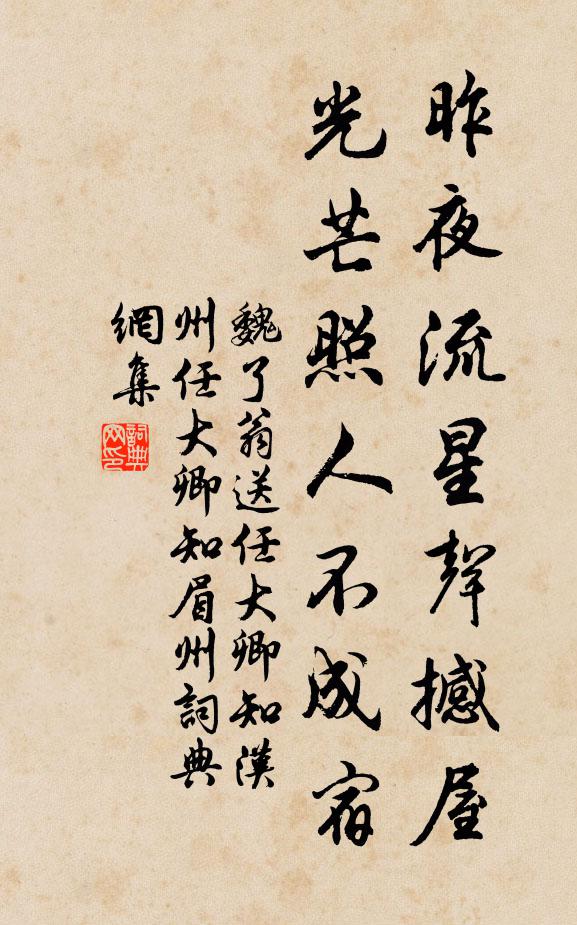 昨夜流星聲撼屋
光芒照人不成宿
魏了翁送任大卿知漢
州任大卿知眉州詞典
網集
詞典
网印